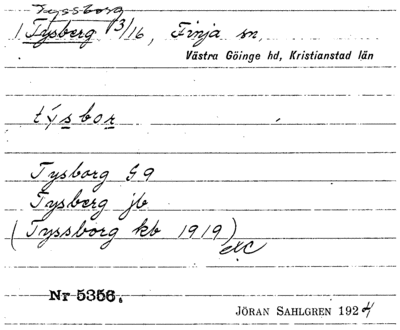 Tyssborg
1 Tysberg 3/16, Finja sn,
Västra Göinge hd, Kristianstad län
týsbor
Tysborg G9
Tysberg jb
(Tyssborg kb 1919)
etc
Nr 5356.
JÖRAN SAHLGREN 1924